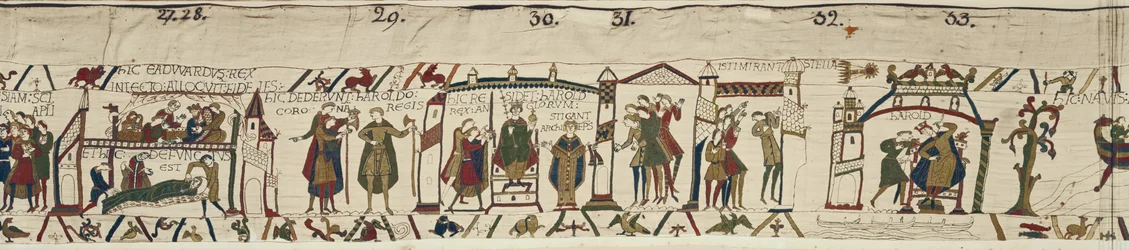 27.28.
29.
30.
31.
32.
33.
SIAM:SCI
APLI
hIC EADVVARDVS:REX
INLECTO:ALLOQVIT:FIDELES:
ET hIC DEFVNCTVS
EST
hIC DEDERVNT:hAROLDO:
CORONA REGIS
hIC RESIDET:hAROLD
REX:ANGLORVM:
STIGANT
ARChIEPS
ISTI MIRANT STELLA
hAROLD
hIC:NAVIS: